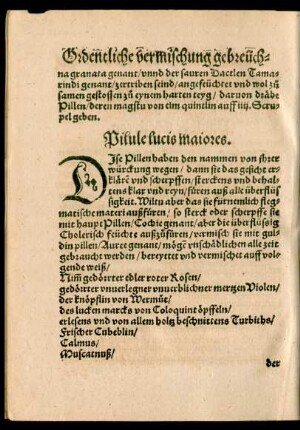 Ordenliche vermischung gebreüch-
na granata genant/vnnd der sauren Dactlen Tama-
rindi genant/zertriben seind/angefeüchtet vnd wol zů
samen gestossen zů eynem harten teyg/daruon dräbe
Pillen/deren magstu von eim quintlin auff iiij. Scru-
pel geben.
Pilule lucis maiores.
DIse Pillen haben den nammen von jhrer
würckung wegen/dann sie das gesicht er-
kläret vnd scherpffen/stercken vnd behal-
tens klar vnd reyn/füren auß alle überflüs-
sigkeit. Wiltu aber das sie fürnemlich fleg-
matische materi außfüren/so sterck oder scherpffe sie
mit haupt Pillen/Cochie genant/aber die überflüssig
Cholerisch feüchte außzüfüren/vermisch sie mit gul-
din pillen/Auree genant/mögē vnschädlichen alle zeit
gebraucht werden/bereytet vnd vermischt auff vol-
gende weiß/
Nim̃ gedörrter edler roter Rosen/
gedörrter vnuerlegner vnuerblichner mertzen Violen/
der knöpflin von Wermůt/
des lucken marcks von Coloquint öpffeln/
erlesens vnd von allem holtz beschnittens Turbiths/
Frischer Cubeblin/
Calmus/
Muscatnuß/
der